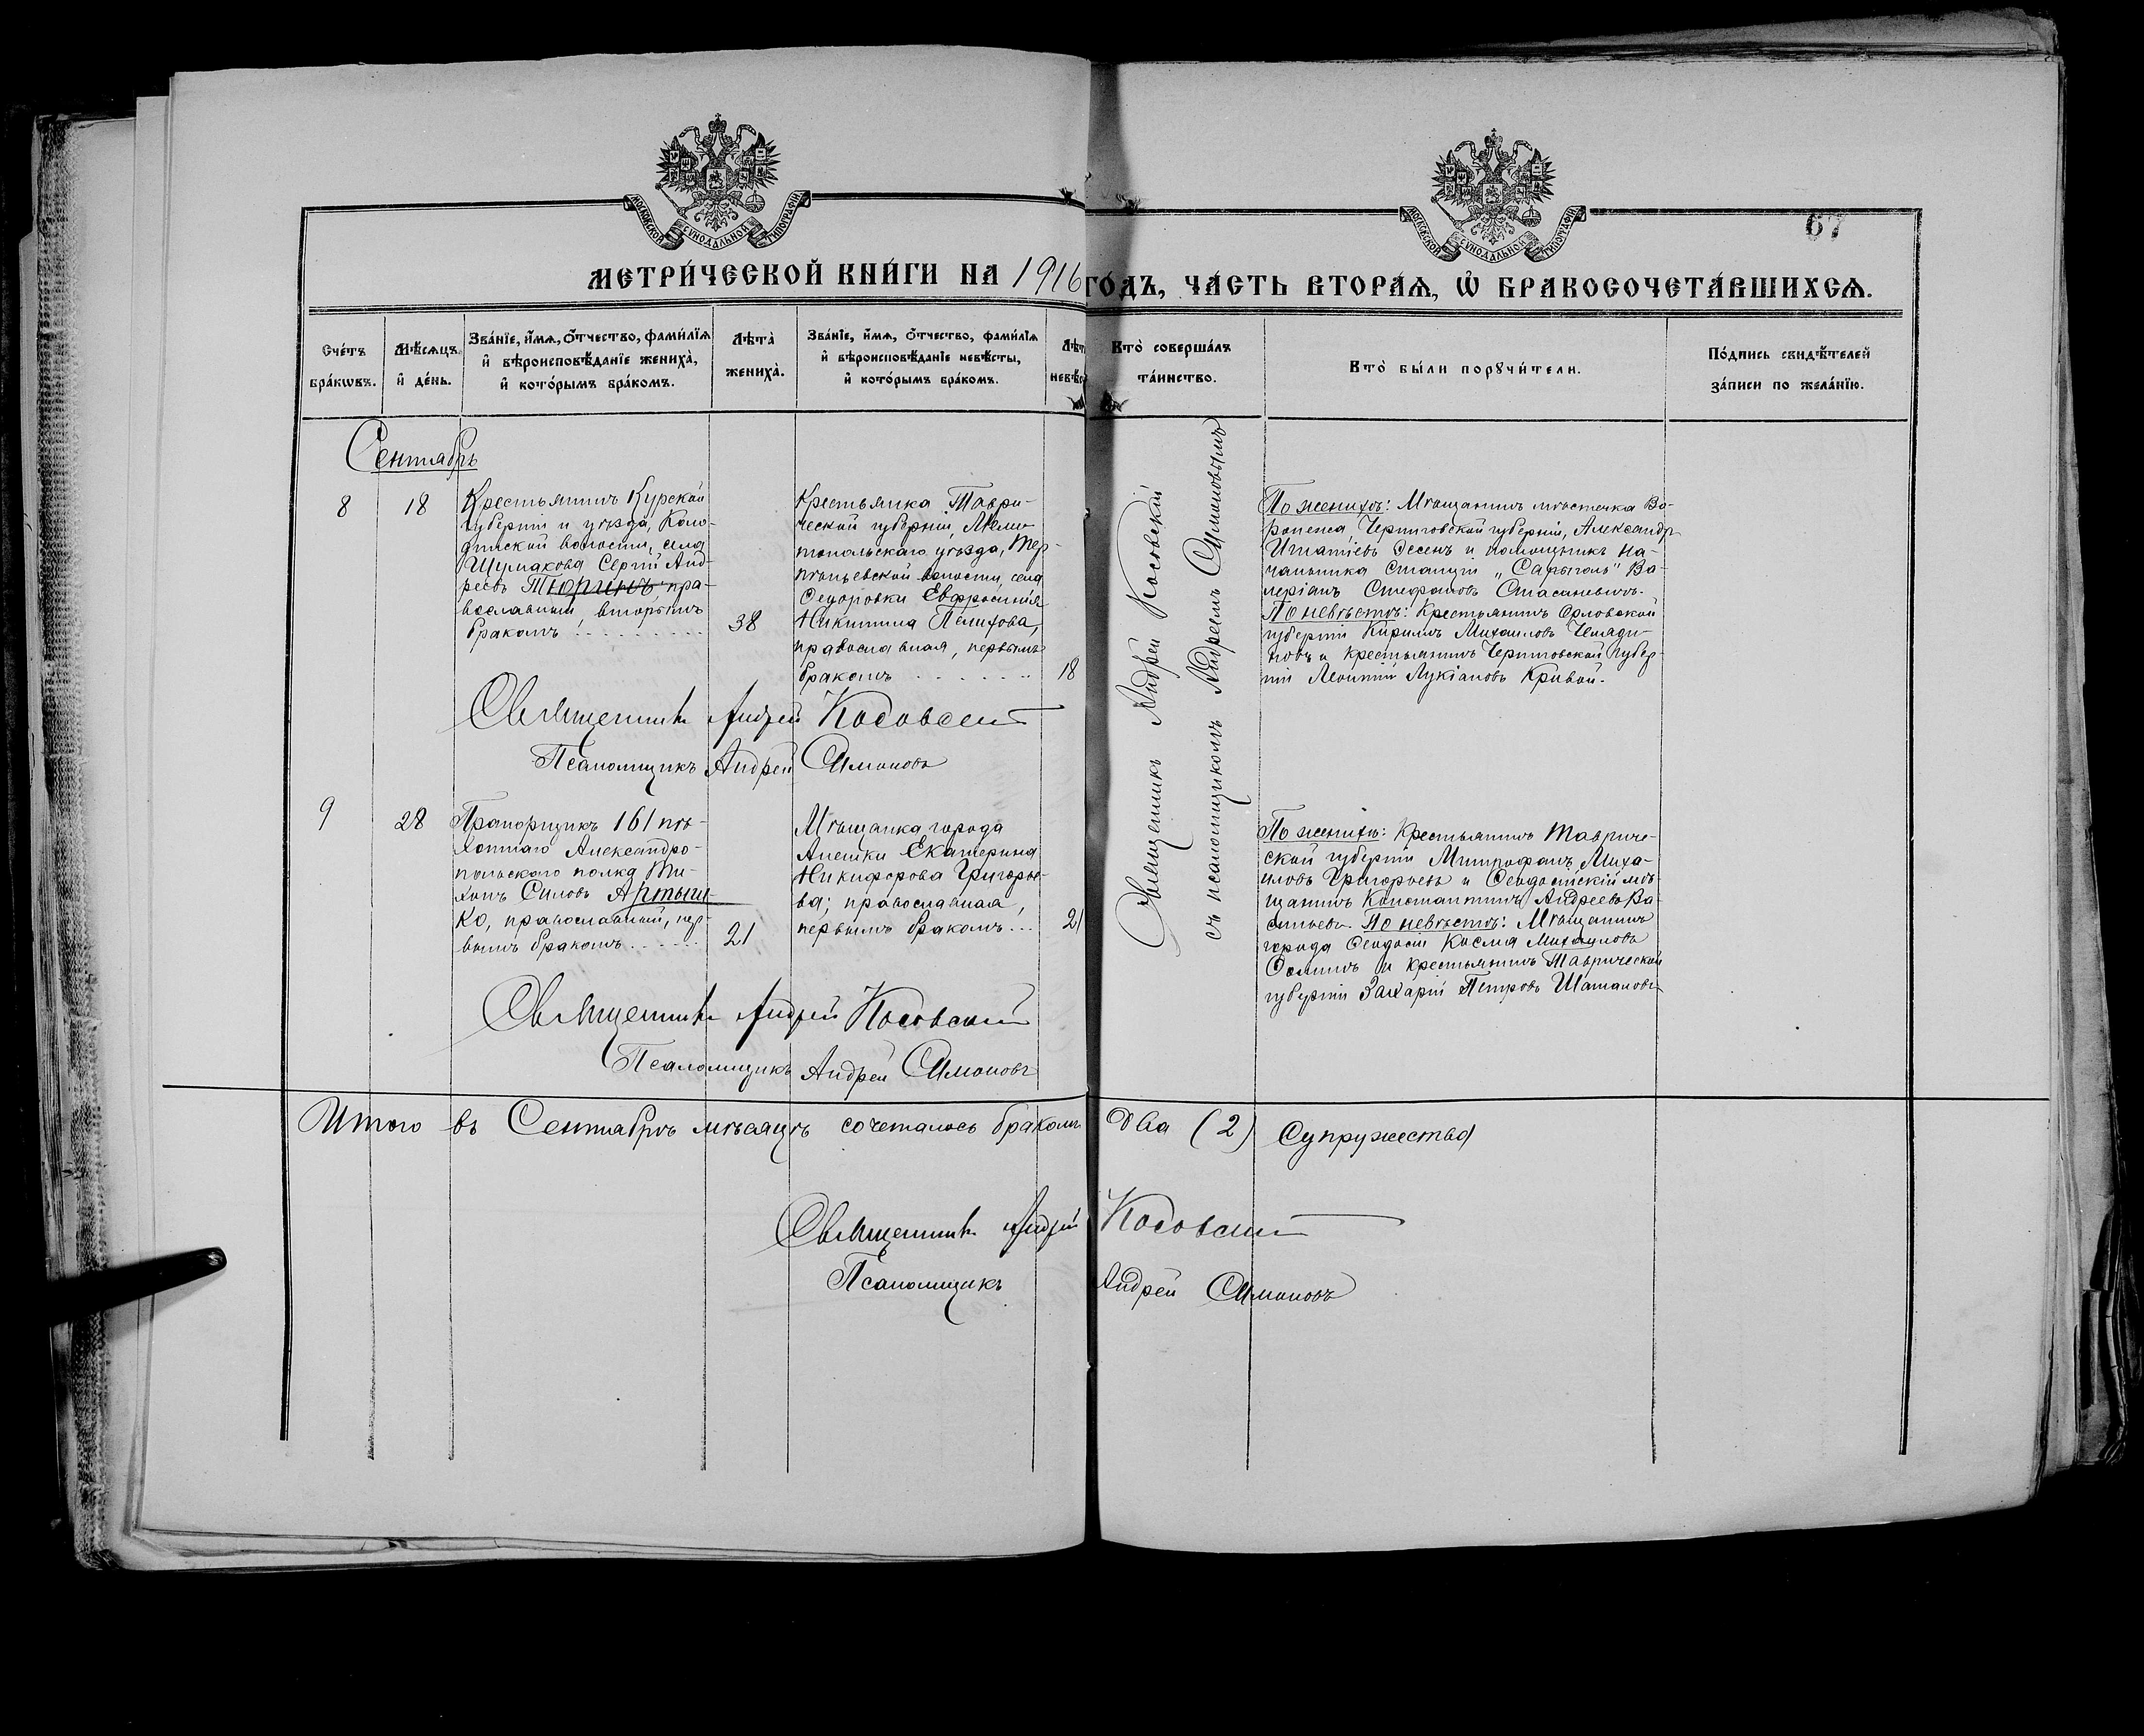 МОСКОВСКОЙ СѴНОДАЛЬНОЙ ТИПОГРАФІИ
МОСКОВСКОЙ СѴНОДАЛЬНОЙ ТИПОГРАФІИ
67
МЕТРИ́ЧЕСКОЙ КНИ́ГИ НА 1916 ГО́ДЪ, ЧА́СТЬ ВТОРА́Ѧ, Ѡ҆ БРАКОСОЧЕТА́ВШИХСѦ.
Сче́тъ
бра́кѡвъ.
Мѣ́сѧцъ
и҆ де́нь.
Зва́нїе, и҆́мѧ, ѻ҆́тчество, фами́лїѧ
и҆ вѣроисповѣ́данїе жениха̀,
и҆ кото́рымъ бра́комъ.
Лѣта̀
жениха̀.
Зва́нїе, и҆́мѧ, ѻ҆́тчество, фами́лїѧ
и҆ вѣроисповѣ́данїе невѣ́сты,
и҆ кото́рымъ бра́комъ.
Лѣт
невѣс
Кто̀ соверша́лъ
та́инство.
Кто̀ бы́ли порꙋчи́тели.
По́дпись свидѣ́телей
за́писи по жела́нїю.
Сентябрь
8
18
Крестьянинъ Курской
губерніи и уѣзда, Коло-
дтской волости, села
Шумакова Сергій Анд-
реевъ Тюринъ, пра-
вославный, вторымъ
бракомъ . . . . . . . . .
38
Крестьянка Таври-
ческой губерніи, Мели-
топольскаго уѣзда, Тер-
пѣньевской волости, села
Ѳедоровки Евфросинія
Никитина Пелихова,
православная, первымъ
бракомъ . . . . . . .
18
Священникъ Андрей Косовскій
съ псаломщикомъ Андреемъ Симоновымъ
По женихѣ: Мѣщанинъ мѣстечка Во-
ронежа, Черниговской губерніи, Александръ
Игнатіевъ Эссенъ и помощникъ на-
чальника станціи „Сарыголь" Ва-
леріанъ Стефановъ Стасаневичъ.
По невѣстѣ: Крестьянинъ Орловской
губерніи Кириллъ Михаиловъ
и крестьянинъ Черниговской губер-
ніи Леонтій Лукіановъ Кривой.
Священникъ Андрей Косовскій
Псаломщикъ Андрей Симоновъ
9
28
Прапорщикъ 161 пѣ-
хотнаго Александро-
польского полка Ти-
хонъ Силовъ Артыш-
ко, православный, пер-
вымъ бракомъ . . . . . .
21
Мѣщанка города
Алешки Екатерина
Никифорова Григорье-
ва; православная,
первымъ бракомъ . . .
21
По женихѣ: Крестьянинъ Тавриче-
ской губерніи Митрофанъ Миха-
иловъ Григорьевъ и Ѳеодосійскій мѣ-
щанинъ Константинъ Андреевъ Ва-
сильевъ. По невѣстѣ: Мѣщанинъ
города Ѳеодосіи Косма Михаиловъ
Ѳоминъ и крестьянинъ Таврической
губерніи Захарій Петровъ Шаталовъ
Священникъ Андрей Косовскій
Псаломщикъ Андрей Симоновъ
Итого въ Сентябрѣ мѣсяцѣ сочеталось бракомъ два (2) супружества
Священникъ Андрей Косовскій
Псаломщикъ Андрей Симоновъ